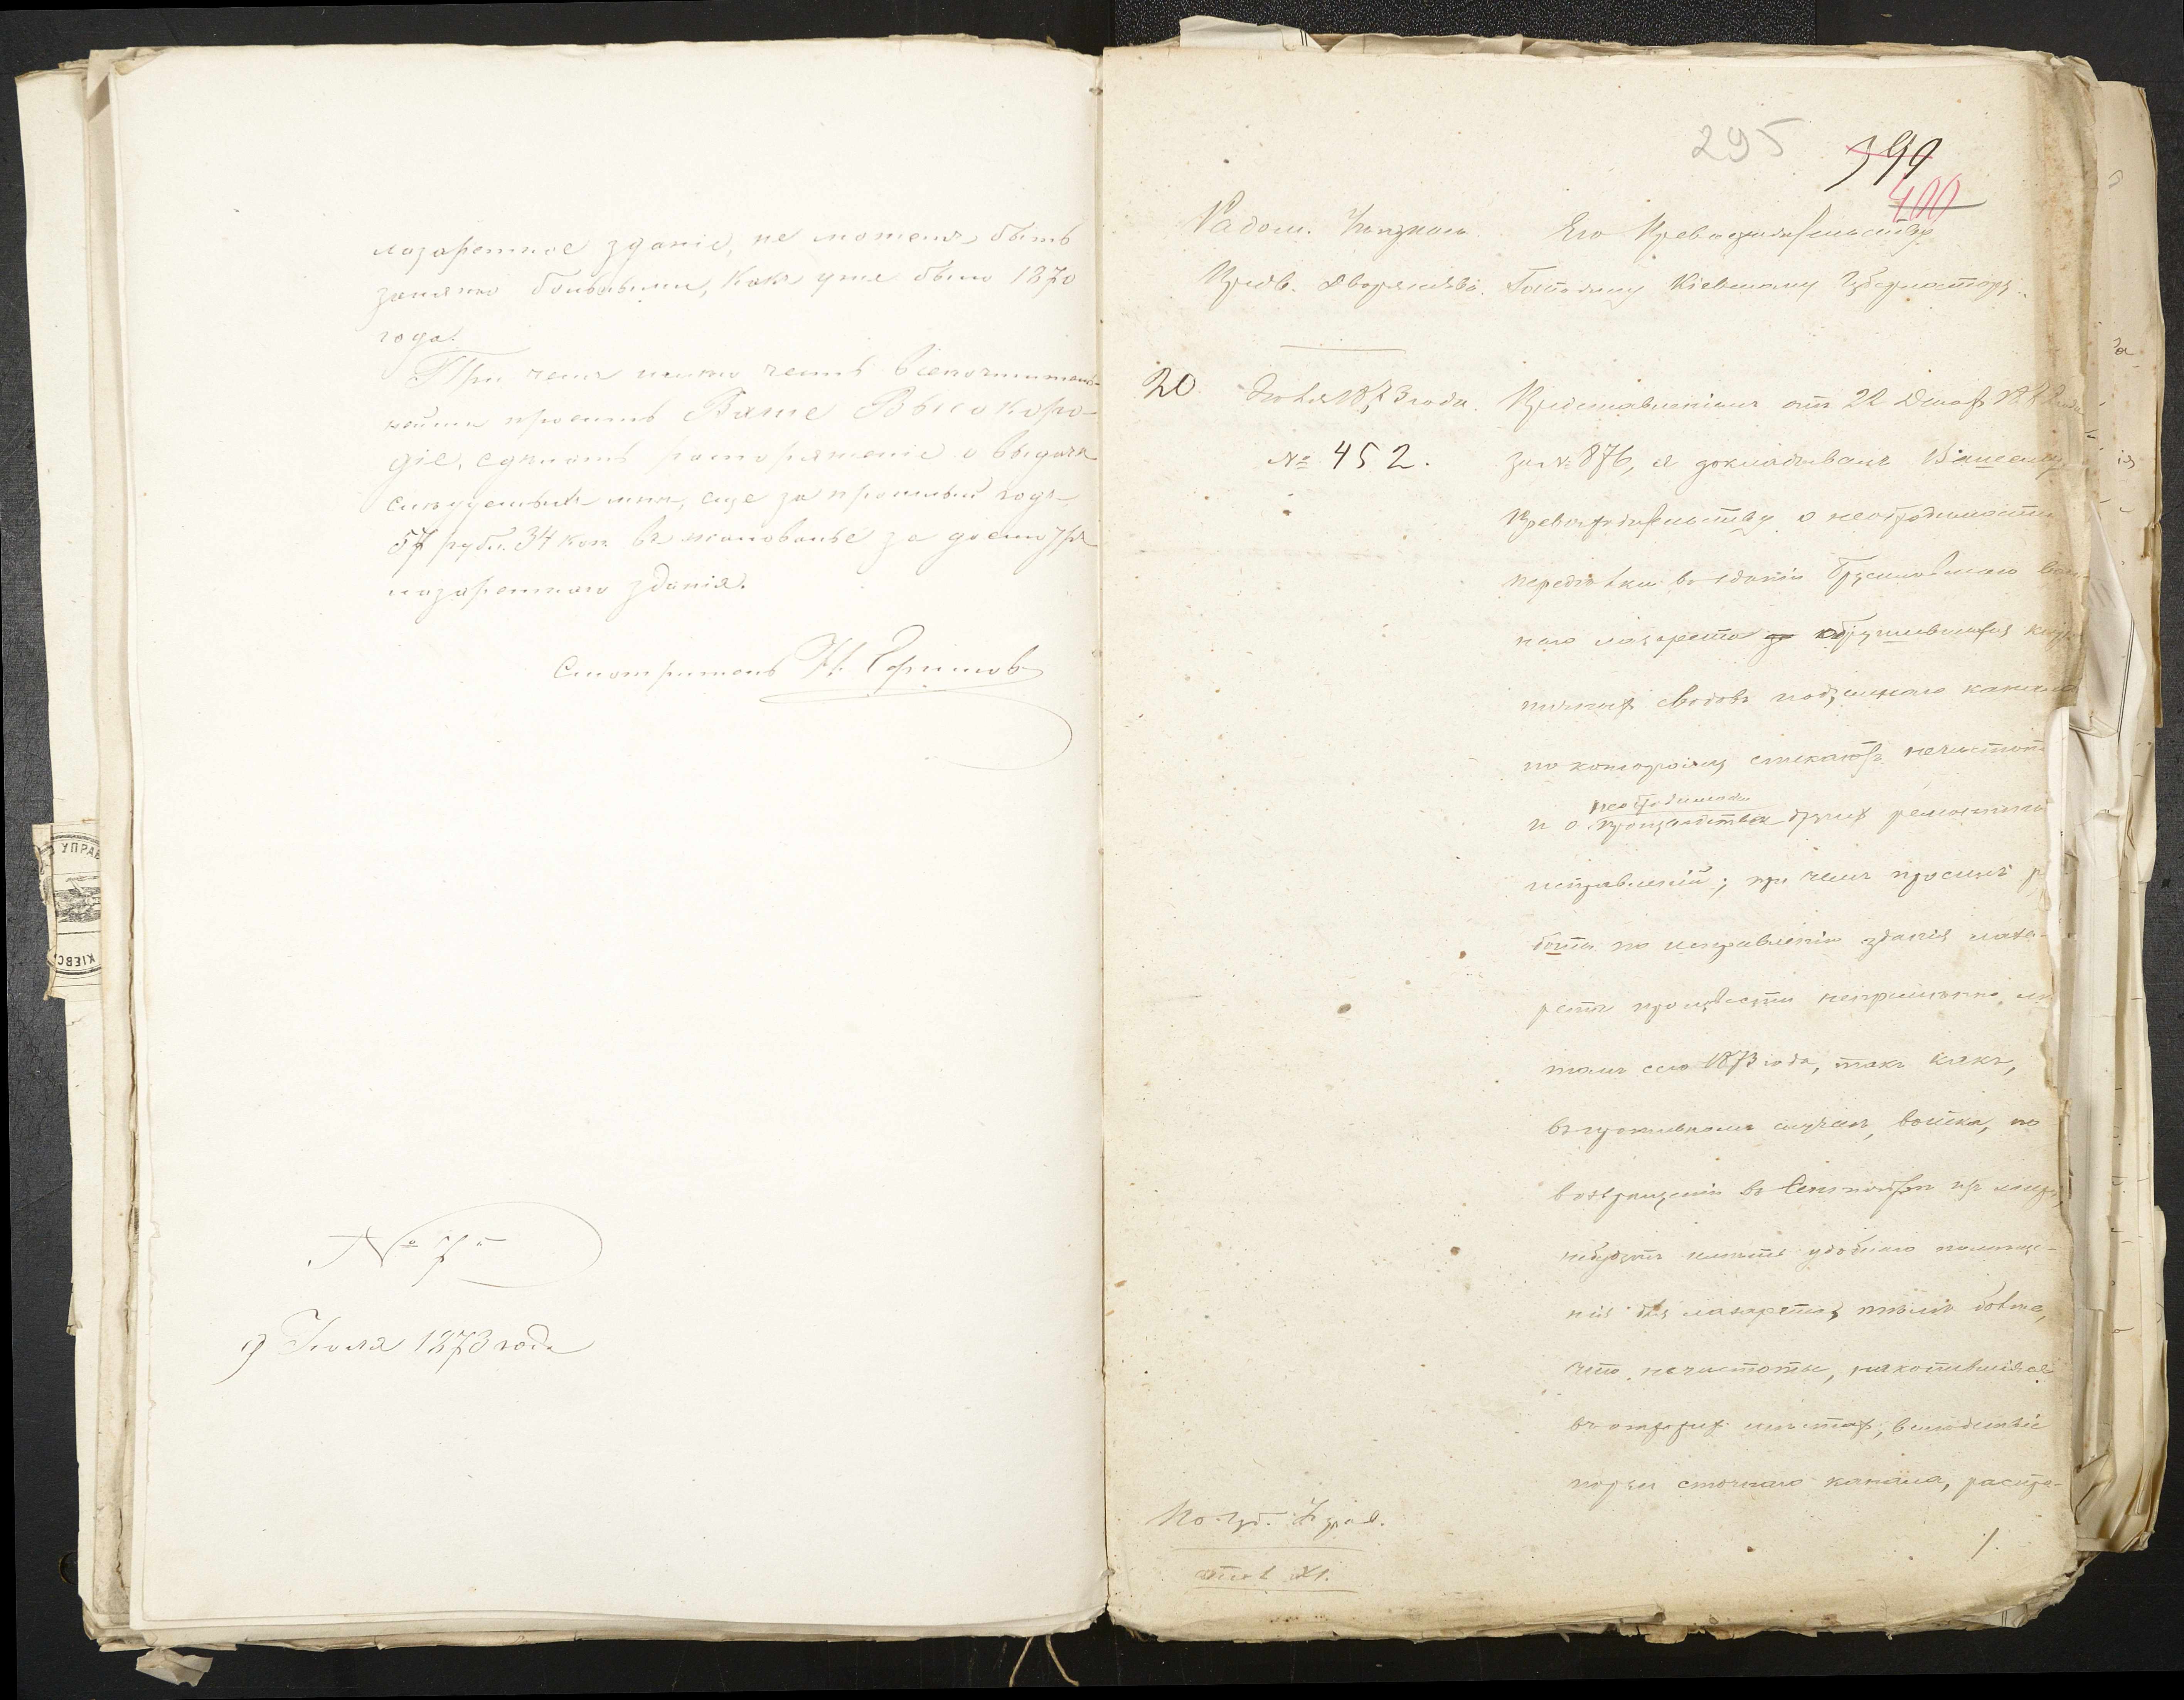 лазаретное зданіе, не можетъ быть
занято больными, какъ уже было 1870
года.
При чемъ имѣю честь всепочтитель-
нѣйше просить Ваше Высокоро-
діе, сдѣлать распоряженіе о выдачѣ
слѣдуемыхъ мнѣ, еще за прошлый годъ
57 руб. 34 коп въ жалованье за досмотръ
лазаретнаго зданія.
Смотритель Н.
№ 7й
9 Іюля 1873 года
УПРАВ
КІЕВС
295
399
400
Радом. Уѣздном.
Предв. Дворянства.
20 Іюля 1873 года.
№ 452.
Его Превосходительству
Господину Кіевскому Губернатору.
Представленіемъ отъ 22 Декаб. 1872 года
за № 876, я докладывалъ Вашему
Превосходительству о необходимости
передѣлки въ зданіи Брусиловскаго воен-
наго лазарета обрушившихся кир-
пичныхъ сводовъ подземнаго канала
по которому стекаютъ нечистоты
необходимости
и о производствѣ другихъ ремонтныхъ
исправленій; при чемъ просилъ ра-
боты по исправленію зданія лаза-
рета произвести непремѣнно лѣ-
томъ сего 1873 года, такъ какъ,
въ противномъ случаѣ, войска, по
возвращеніи въ Сентябрѣ изъ лагеря,
небудутъ имѣть удобнаго помѣще-
нія для лазарета, тѣмъ болѣе,
что нечистоты, накопившіяся
въ отхожихъ мѣстахъ, вслѣдствіе
порчи сточнаго канала, распро-
По губ. Упра.
стол XI.
1.